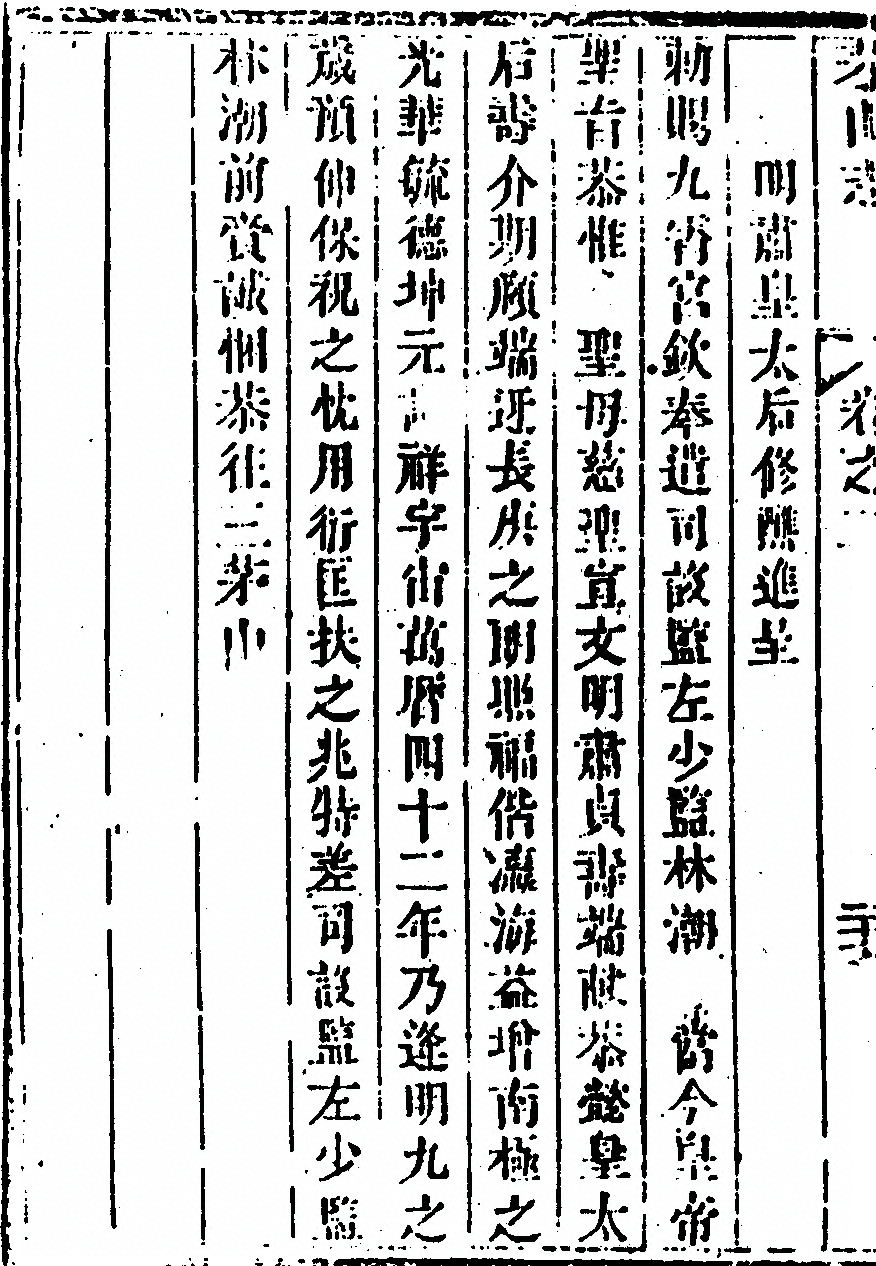 明肅皇太后修醮進呈
勅賜九霄宮欽奉道司設監左少監林潮 今皇帝
聖旨恭惟 聖母慈聖宣文明肅貞壽端獻恭懿皇太
后壽介期頤端迓長庚之朗照福偕瀛海益增南極之
光華毓德坤元 祥宇宙萬曆四十二年乃逢明九之
歲預伸保祝之忱用衍匡扶之兆特差司設監左少監
林潮前賫誠悃恭往三茅山
卷之